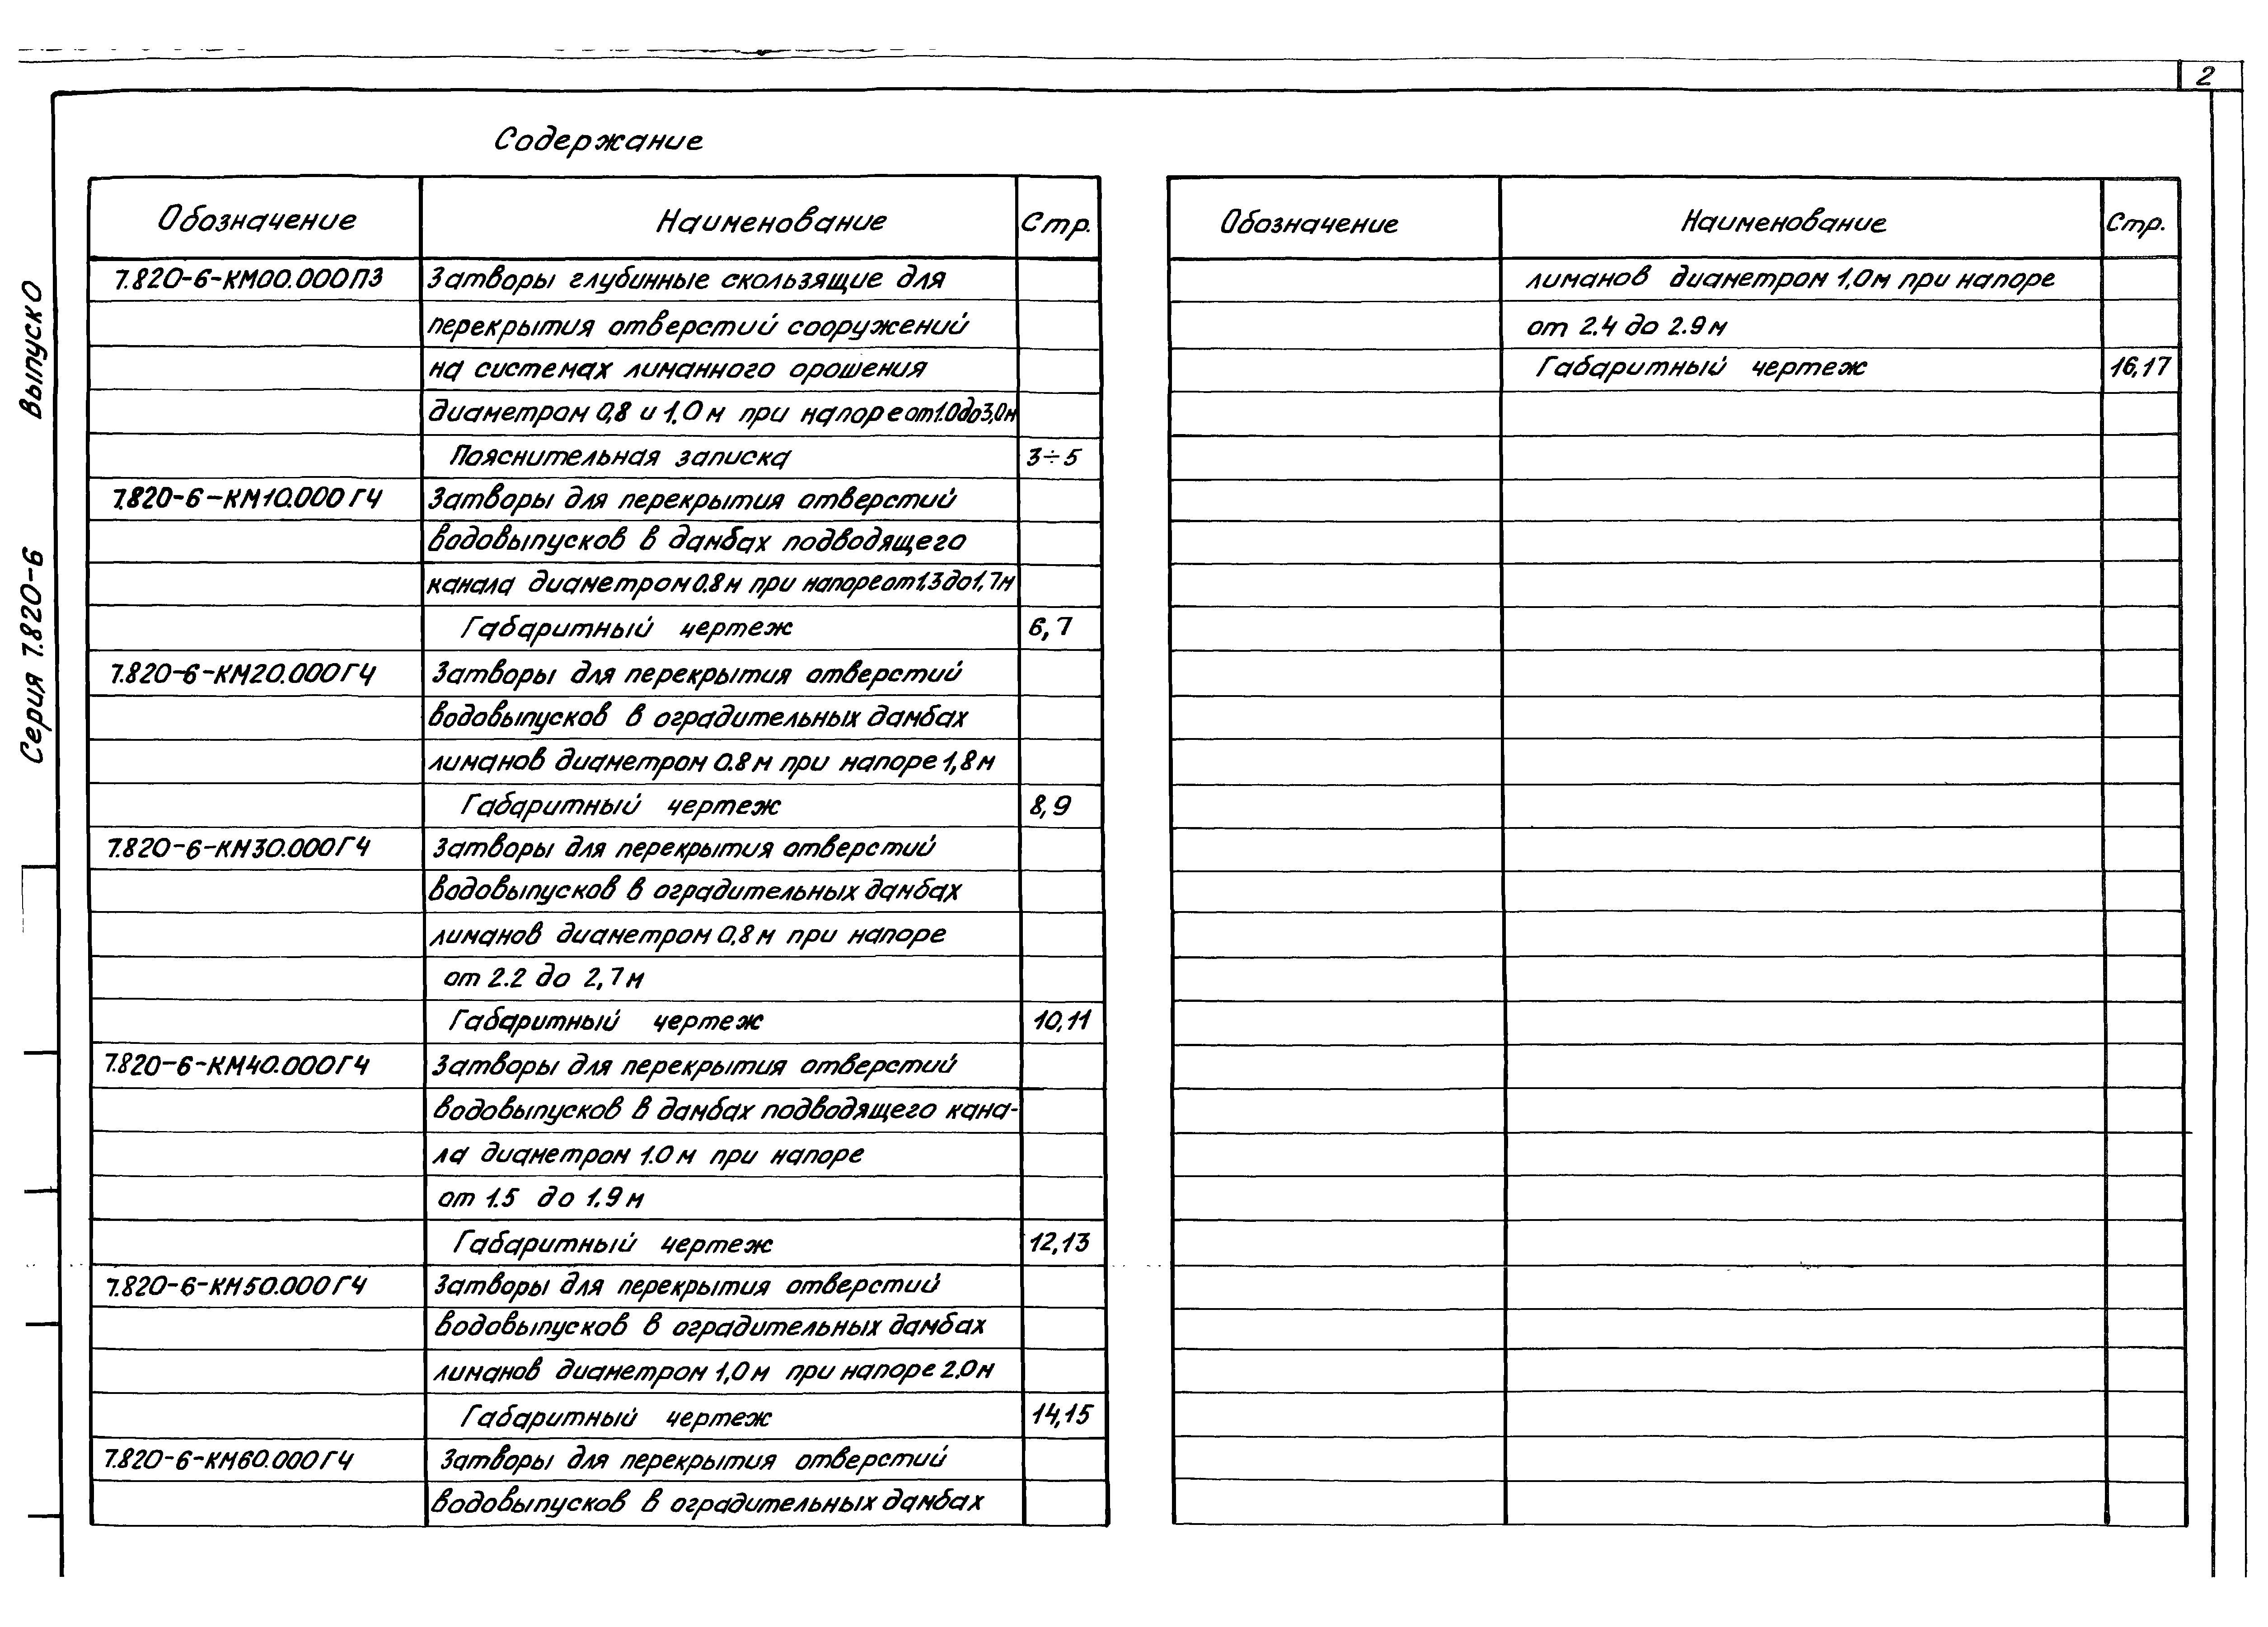 2
Содержание
Обозначение Наименование Стр.
7.820-6-КМ00.000ПЗ Затворы глубинные скользящие для
перекрытия отверстий сооружений
на системах лиманного орошения
диаметром 0,8 и 1.0 м при напоре от 1.0 до 3,0м
Пояснительная записка 3÷5
7.820-6-КМ10.000ГЧ Затворы для перекрытия отверстий
водовыпусков в дамбах подводящего
канала диаметром 0.8м при напоре от 1.3 до 1,7м
Габаритный чертеж 6,7
7.820-6-КМ20.000ГЧ Затворы для перекрытия отверстий
водовыпусков в оградительных дамбах
лиманов диаметром 0.8м при напоре 1,8м
Габаритный чертеж 8,9
7.820-6-КМ30.000ГЧ Затворы для перекрытия отверстий
водовыпусков в оградительных дамбах
лиманов диаметром 0,8м при напоре
от 2.2 до 2,7м
Габаритный чертеж 10,11
7.820-6-КМ40.000ГЧ Затворы для перекрытия отверстий
водовыпусков в дамбах подводящего кана-
ла диаметром 1.0м при напоре
от 1.5 до 1.9м
Габаритный чертеж 12,13
7.820-6-КМ50.000ГЧ Затворы для перекрытия отверстий
водовыпусков в оградительных дамбах
лиманов диаметром 1,0м при напоре 2.0м
Габаритный чертеж 14,15
7.820-6-КМ60.000ГЧ Затворы для перекрытия отверстий
водовыпусков в оградительных дамбах
Обозначение Наименование Стр.
лиманов диаметром 1,0м при напоре
от 2.4 до 2.9м
Габаритный чертеж 16,17
Серия 7.820-6 Выпуск 0